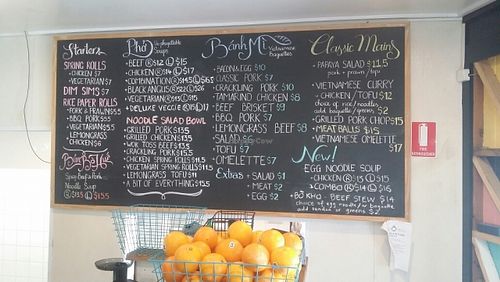 Starters
SPRING ROLLS
CHICKEN $7
VEGETARIAN $7
DIM SIMS $7
RICE PAPER ROLLS
PORK & PRAWN $5.5
BBQ PORK $5.5
VEGETARIAN $5.5
LEMONGRASS
CHICKEN $6
Bún Bò Huế
Spicy Beef & Pork
Noodle Soup
Phở
Unforgettable
Soups
BEEF R $12 L $15
CHICKEN R $14 L $17
COMBINATION R $14.5 L $16.5
BLACK ANGUS R $22 L $26
VEGETARIAN R $13 L $15
DELUXE VEGIE R $15 L $17
NOODLE SALAD BOWL
GRILLED PORK $13.5
GRILLED CHICKEN $13.5
WOK TOSS BEEF $13.5
CRACKLING PORK $15.5
CHICKEN SPRING ROLLS $11.5
VEGETARIAN SPRING ROLLS $11.5
LEMONGRASS TOFU $11
A BIT OF EVERYTHING $15.5
Bánh Mì
Vietnamese
Baguettes
BACON & EGG $10
CLASSIC PORK $7
CRACKLING PORK $10
TAMARIND CHICKEN $8
BEEF BRISKET $9
BBQ PORK $7
LEMONGRASS BEEF $8
SALAD $6
TOFU $7
OMELETTE $7
Extras
SALAD $1
MEAT $2
EGG $2
Classic Mains
PAPAYA SALAD $11.5
pork + prawn / tofu
VIETNAMESE CURRY
CHICKEN / TOFU $12
choice of rice / noodles,
add baguette / greens $2
GRILLED PORK CHOP $15
MEAT BALLS $15
VIETNAMESE OMELETTE
$17
New!
EGG NOODLE SOUP
CHICKEN R $13 L $15
COMBO R $14 L $16
BÒ KHO BEEF STEW $14
choice of egg noodle / w baguette
add salad or greens $2
FIRE